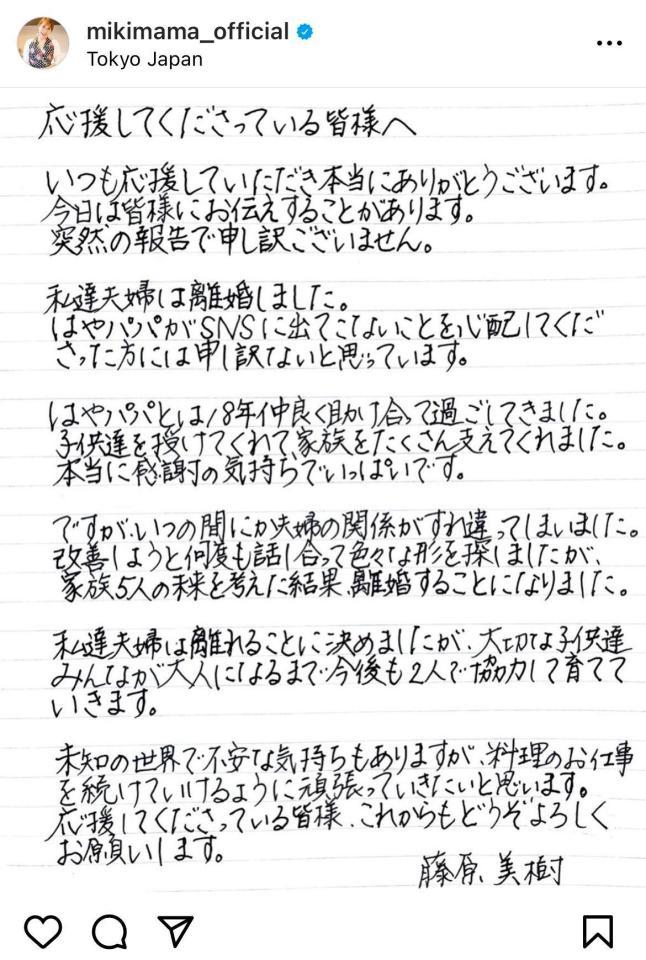 mikimama_official
Tokyo Japan
応援してくださっている皆様へ
いつも応援していただき本当にありがとうございます。
今日は皆様にお伝えすることがあります。
突然の報告で申し訳ございません。
私達夫婦は離婚しました。
はやパパがSNSに出てこないことを心配してくだ
さった方には申し訳ないと思っています。
はやパパとは18年仲良く助け合って過ごしてきました。
子供達を授けてくれて、家族をたくさん支えてくれました。
本当に感謝の気持ちでいっぱいです。
ですが、いつの間にか夫婦の関係がすれ違ってしまいました。
改善しようと何度も話し合って色々な形を探しましたが、
家族5人の未来を考えた結果、離婚することになりました。
私達夫婦は離れることに決めましたが、大切な子供達
みんなが大人になるまで今後も2人で協力して育てて
いきます。
未知の世界で不安な気持ちもありますが、料理のお仕事
を続けていけるように頑張っていきたいと思います。
応援してくださっている皆様、これからもどうぞよろしく
お願いします。
藤原美樹